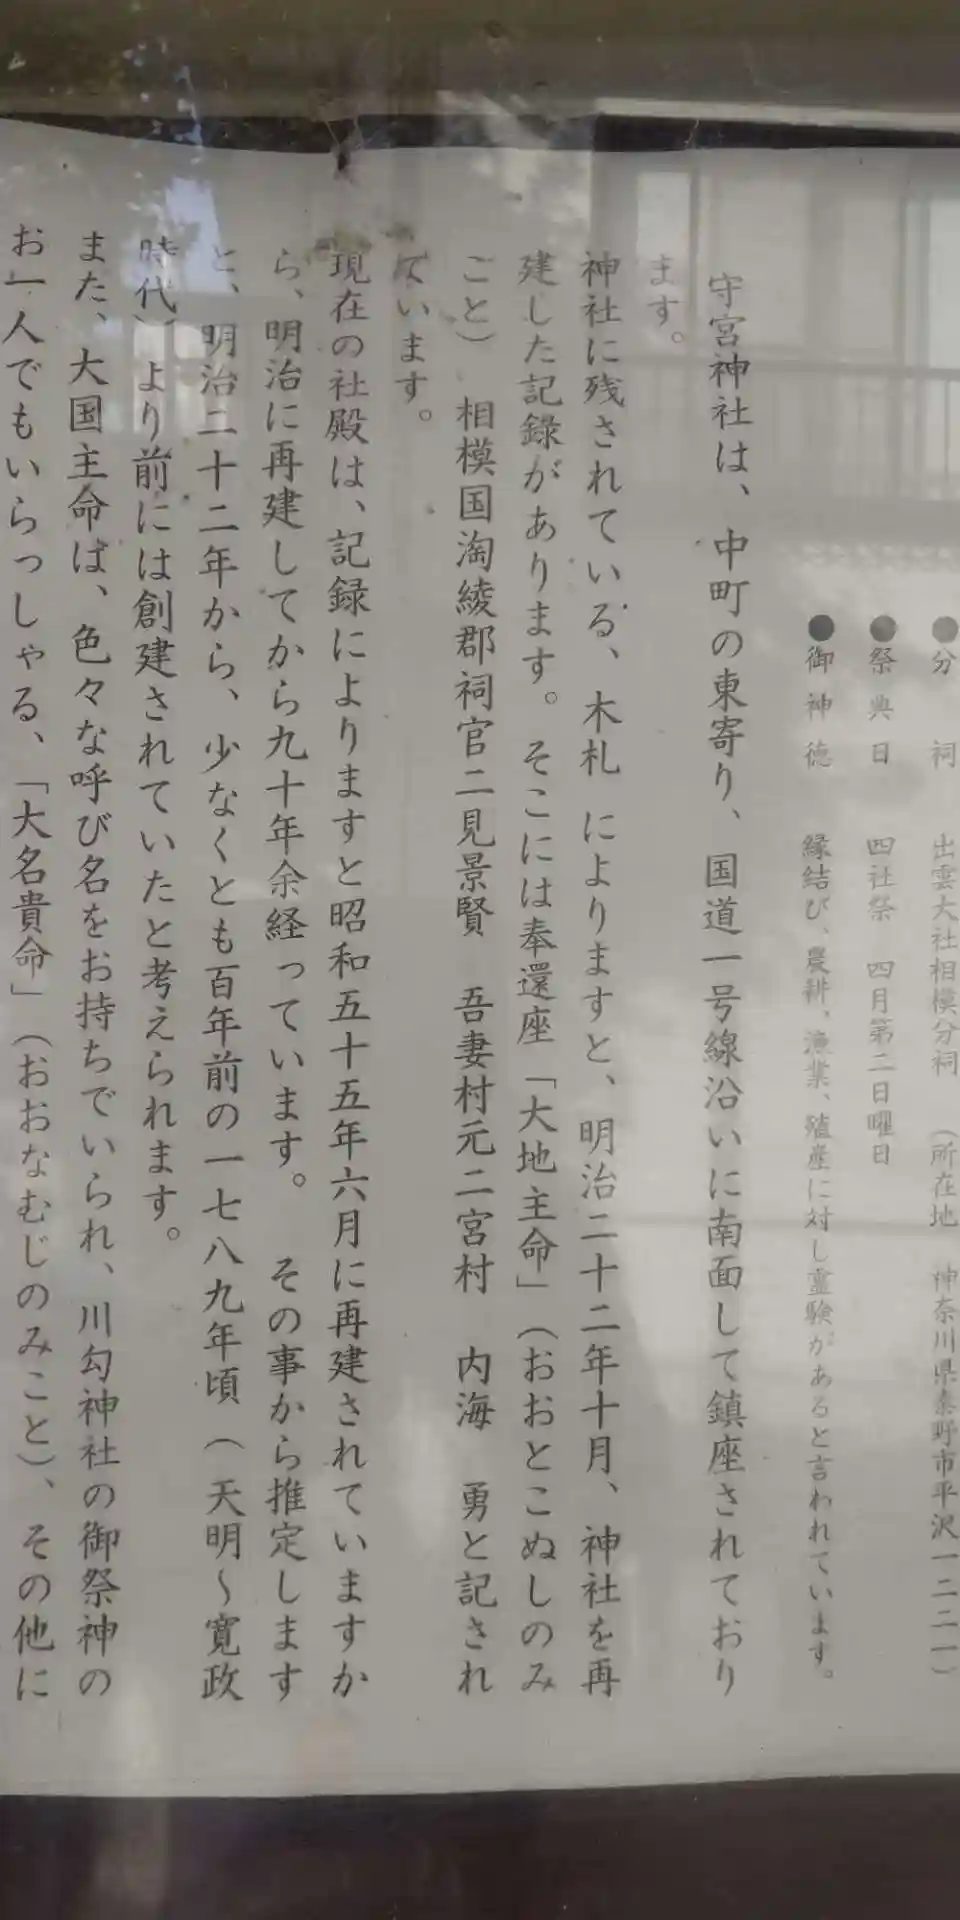 ●分祠 出雲大社相模分祠 (所在地 神奈川県秦野市平沢一二二一)
●祭典日 四社祭 四月第二日曜日
●御神徳 縁結び、農耕、漁業、殖産に対し霊験があると言われています。
守宮神社は、中町の東寄り、国道一号線沿いに南面して鎮座されており
ます。
神社に残されている、木札 によりますと、明治二十二年十月、神社を再
建した記録があります。そこには奉還座「大地主命」(おおとこぬしのみ
こと) 相模国淘綾郡祠官二見景賢 吾妻村元二宮村 内海 勇と記され
ています。
現在の社殿は、記録によりますと昭和五十五年六月に再建されていますか
ら、明治に再建してから九十年余経っています。 その事から推定します
と、明治二十二年から、少なくとも百年前の一七八九年頃 (天明~寛政
時代)より前には創建されていたと考えられます。
また、大国主命は、色々な呼び名をお持ちでいられ、川勾神社の御祭神の
お一人でもいらっしゃる、「大名貴命」(おおなむじのみこと)、その他に